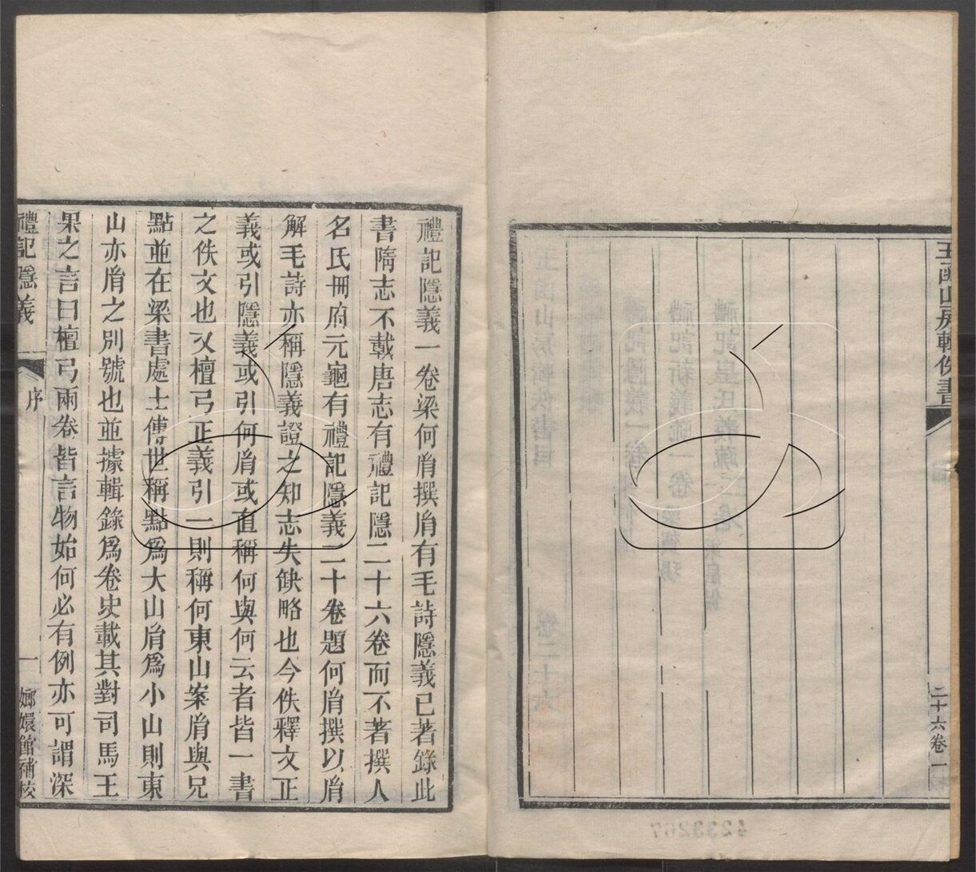 玉函山房輯佚書
二十六卷一
禮記隱義一卷梁何胤撰胤有毛詩隱義已著錄此
書隋志不載唐志有禮記隱二十六卷而不著撰人
名氏冊府元龜有禮記隱義二十卷題何胤撰以胤
解毛詩亦稱隱義證之知志失缺略也今佚釋文正
義或引隱義或引何胤或直稱何與何云者皆一書
之佚文也又檀弓正義引一則稱何東山案胤與兄
點並在梁書處士傳世稱點爲大山胤爲小山則東
山亦胤之別號也並據輯錄爲卷史載其對司馬王
果之言曰檀弓兩卷皆言物始何必有例亦可謂深
禮記隱義
序
一
嫏嬛館補校